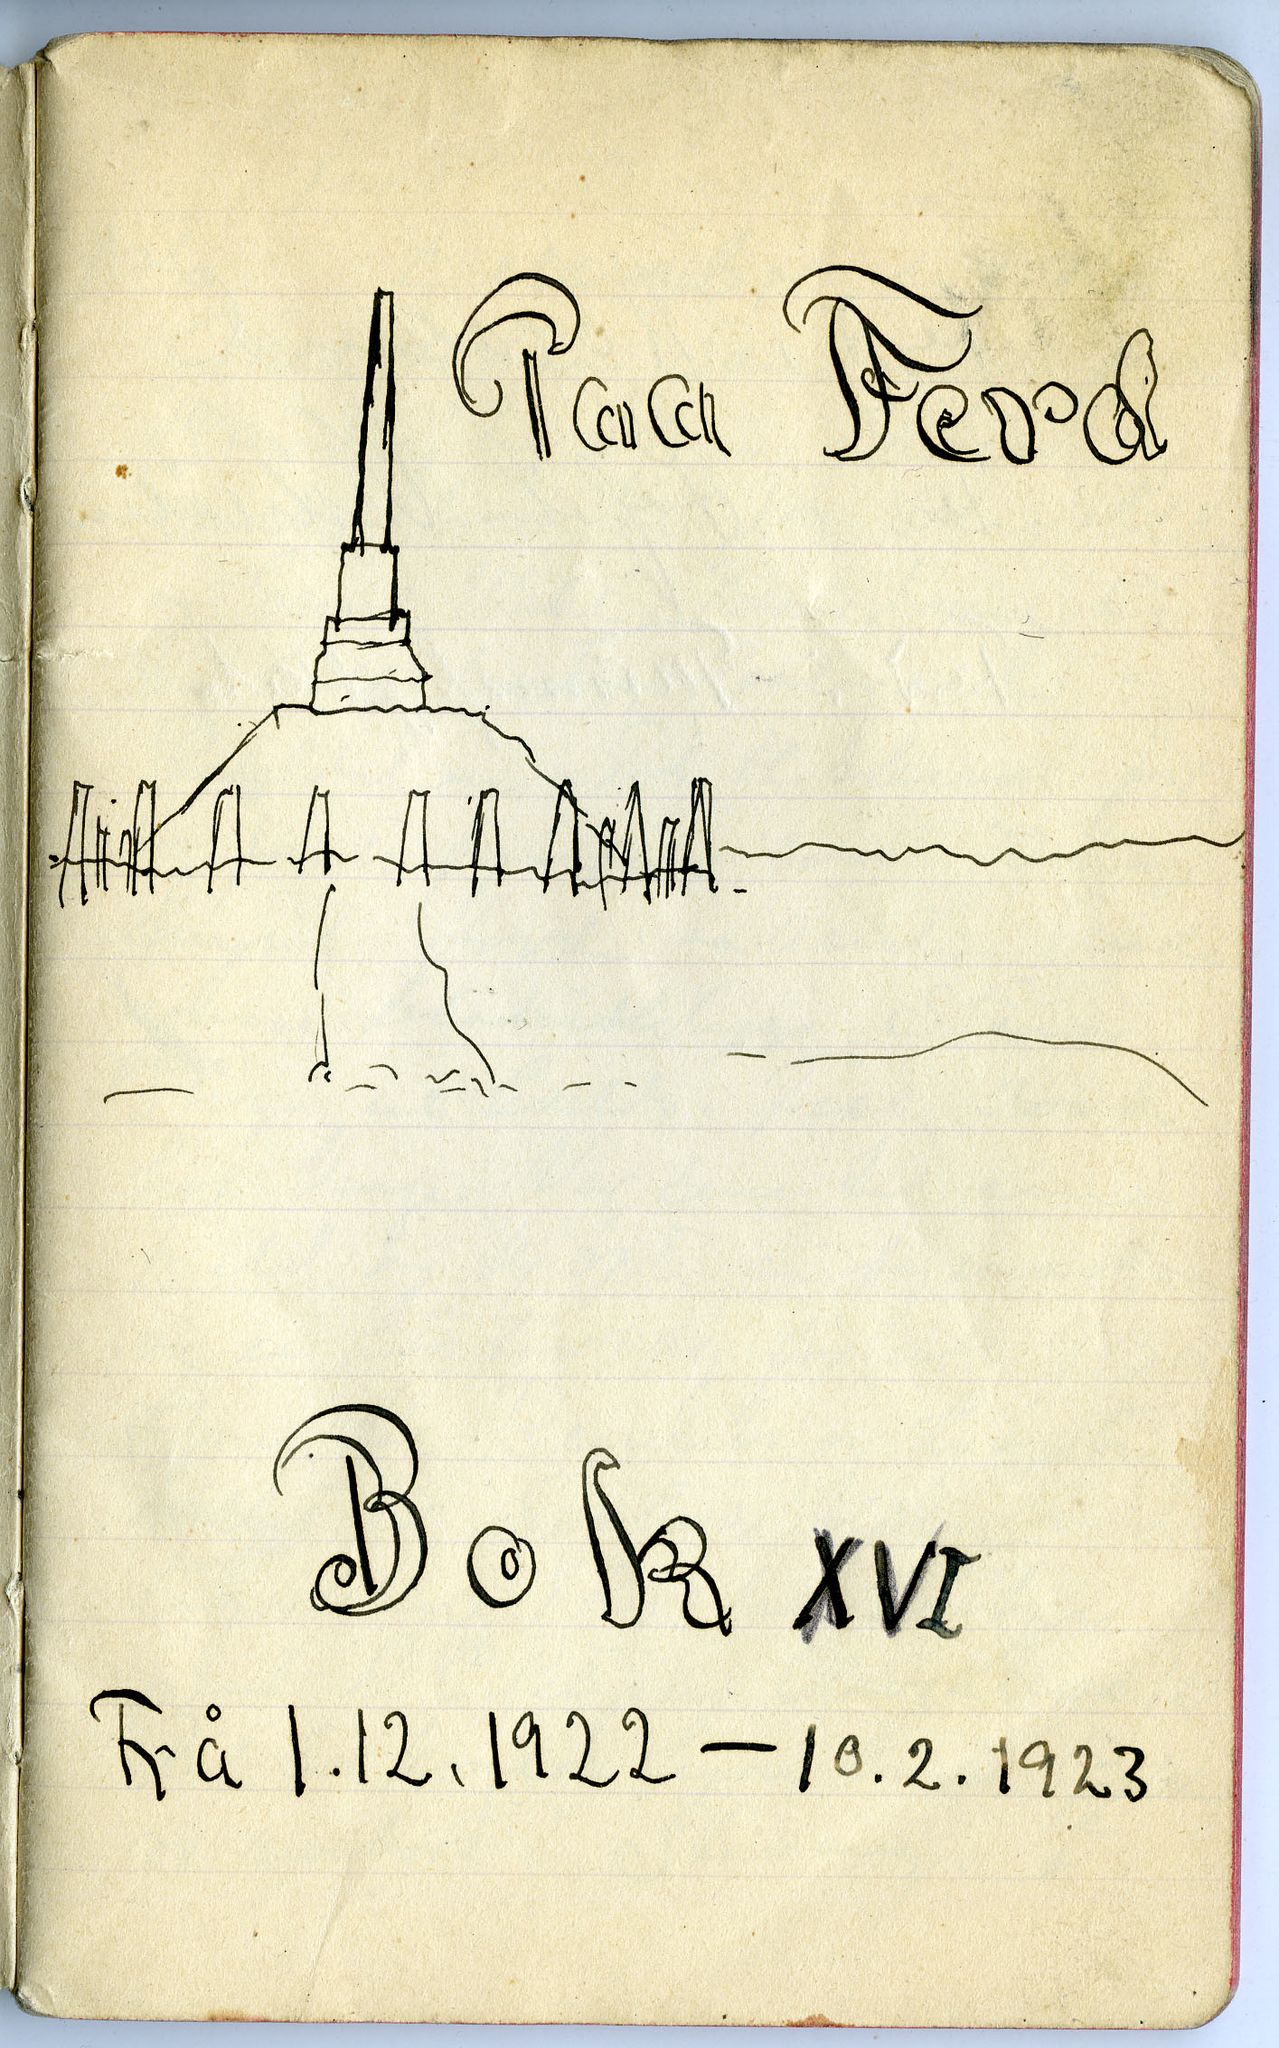 Paa Ferd
Bok XVI
Frå 1.12.1922 — 10.2.1923